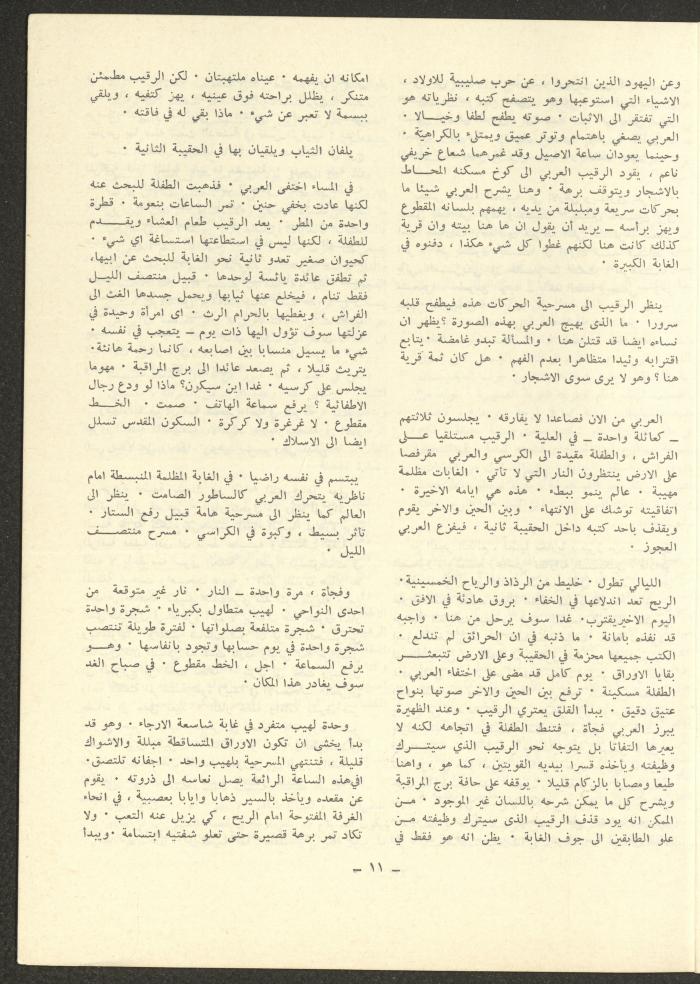 وعن اليهود الذين انتحروا ، عن حرب صليبية للاولاد ،
الاشياء التي استوعبها وهو يتصفح كتبه ، نظرياته هو
التي تفتقر الى الاثبات · صوته يطفح لطفا وخيـــالا ·
العربي يصغي باهتمام وتوتر عميق ويمتلىء بالكراهية ·
وحينما يعودان ساعة الاصيل وقد غمرهما شعاع خريفي
ناعم ، يقود الرقيب العربي الى كوخ مسكنه المحـــاط
بالاشجار ويتوقف برهة · وهنا يشرح العربي شيئا ما
بحركات سريعة ومبلبلة من يديه ، يهمهم بلسانه المقطوع
ويهز برأسه – يريد أن يقول ان ها هنا بيته وان قرية
كذلك كانت هنا لكنهم غطوا كل شيء هكذا ، دفنوه في
الغابة الكبيرة ·
ينظر الرقيب الى مسرحية الحركات هذه فيطفح قلبه
سرورا · ما الذى يهيج العربي بهذه الصورة ؟يظهر ان
نساءه ايضا قد قتلن هنا · والمسالة تبدو غامضة ·يتابع
اقترابه وئيدا متظاهرا بعدم الفهم · هل كان ثمة قرية
هنا ؟ وهو لا يرى سوى الاشجار ·
العربي من الان فصاعدا لا يفارقه · يجلسون ثلاثتهم
– كعائلة واحدة – في العلية · الرقيب مستلقيا عـــلى
الفراش ، والطفلة مقيدة الى الكرسي والعربي مقرفصا
على الارض ينتظرون النار التي لا تاتي · الغابات مظلمة
مهيبة · عالم ينمو ببطء · هذه هي ايامه الاخيرة ·
اتفاقيته توشك على الانتهاء · وبين الحين والاخر يقوم
ويقذف باحد كتبه داخل الحقيبة ثانية ، فيفزع العربي
العجوز ·
الليالي تطول · خليط من الرذاذ والرياح الخمسينية·
الريح تعد اندلاعها في الخفاء · بروق هادئة في الافق ·
اليوم الاخيريقترب· غدا سوف يرحل من هنا · واجبه
قد نفذه بامانة · ما ذنبه في ان الحرائق لم تندلع ·
الكتب جميعها محزمة في الحقيبة وعلى الارض تتبعثـــر
بقايا الاوراق · يوم كامل قد مضى على اختفاء العربي ·
الطفلة مسكينة · ترفع بين الحين والاخر صوتها بنواح
عتيق دقيق · يبدأ القلق يعتري الرقيب · وعند الظهيرة
يبرز العربي فجأة ، فتنط الطفلة في اتجاهه لكنه لا
يعيرها التفاتا بل يتوجه نحو الرقيب الذي سيتـــرك
وظيفته وياخذه قسرا بيديه القويتين ، كما هو ، واهنا
طبعا ومصابا بالزكام قليلا · يوقفه على حافة برج المراقبة
ويشرح كل ما يمكن شرحه باللسان غير الموجود · مـن
الممكن انه يود قذف الرقيب الذى سيترك وظيفته مـن
علو الطابقين الى جوف الغابة · يظن انه هو فقط في
امكانه ان يفهمه · عيناه ملتهبتان · لكن الرقيب مطمئن
متنكر ، يظلل براحته فوق عينيه ، يهز كتفيه ، ويلقي
ببسمة لا تعبر عن شيء · ماذا بقي له في فاقته ·
يلفان الثياب ويلقيان بها في الحقيبة الثانية ·
في المساء اختفى العربي · فذهبت الطفلة للبحث عنه
لكنها عادت بخفي حنين · تمر الساعات بنعومة · قطرة
واحدة من المطر · يعد الرقيب طعام العشاء ويقـــدم
للطفلة ، لكنها ليس في استطاعتها استساغة اي شيء ·
كحيوان صغير تعدو ثانية نحو الغابة للبحث عن ابيها،
ثم تطفق عائدة يائسة لوحدها · قبيل منتصف الليــل
فقط تنام ، فيخلع عنها ثيابها ويحمل جسدها الغث الى
الفراش ، ويغطيها بالحرام الرث · اى امرأة وحيدة في
عزلتها سوف تؤول اليها ذات يوم – يتعجب في نفسه ·
شيء ما يسيل منسابا بين اصابعه ، كانما رحمة هانئة·
يتريث قليلا ، ثم يصعد عائدا الى برج المراقبة · مهوما
يجلس على كرسيه · غدا اين سيكون؟ ماذا لو ودع رجال
الاطفائية ؟ يرفع سماعة الهاتف · صمت · الخـــط
مقطوع · لا غرغرة ولا كركرة · السكون المقدس تسلل
ايضا الى الاسلاك ·
يبتسم في نفسه راضيا · في الغابة المظلمة المنبسطة امام
ناظريه يتحرك العربي كالساطور الصامت · ينظر الى
العالم كما ينظر الى مسرحية هامة قبيل رفع الستار ·
تاثر بسيط ، وكبوة في الكراسي · مسرح منتصـــف
الليل ·
وفجأة ، مرة واحدة – النار · نار غير متوقعة من
احدى النواحي · لهيب متطاول بكبرياء · شجرة واحدة
تحترق · شجرة متلفعة بصلواتها · لفترة طويلة تنتصب
شجرة واحدة في يوم حسابها وتجود بانفاسها · وهـــو
يرفع السماعة · اجل ، الخط مقطوع · في صباح الغد
سوف يغادر هذا المكان ·
وحدة لهيب متفرد في غابة شاسعة الارجاء · وهو قد
بدأ يخشى ان تكون الاوراق المتساقطة مبللة والاشواك
قليلة ، فتنتهي المسرحية بلهيب واحد · اجفانه تلتصق·
افيهذه الساعة الرائعة يصل نعاسه الى ذروته · يقوم
عن مقعده وياخذ بالسير ذهابا وايابا بعصبية ، في انحاء
الغرفة المفتوحة امام الريح ، كي يزيل عنه التعب · ولا
تكاد تمر برهة قصيرة حتى تعلو شفتيه ابتسامة ·ويبدأ
– ١١ –